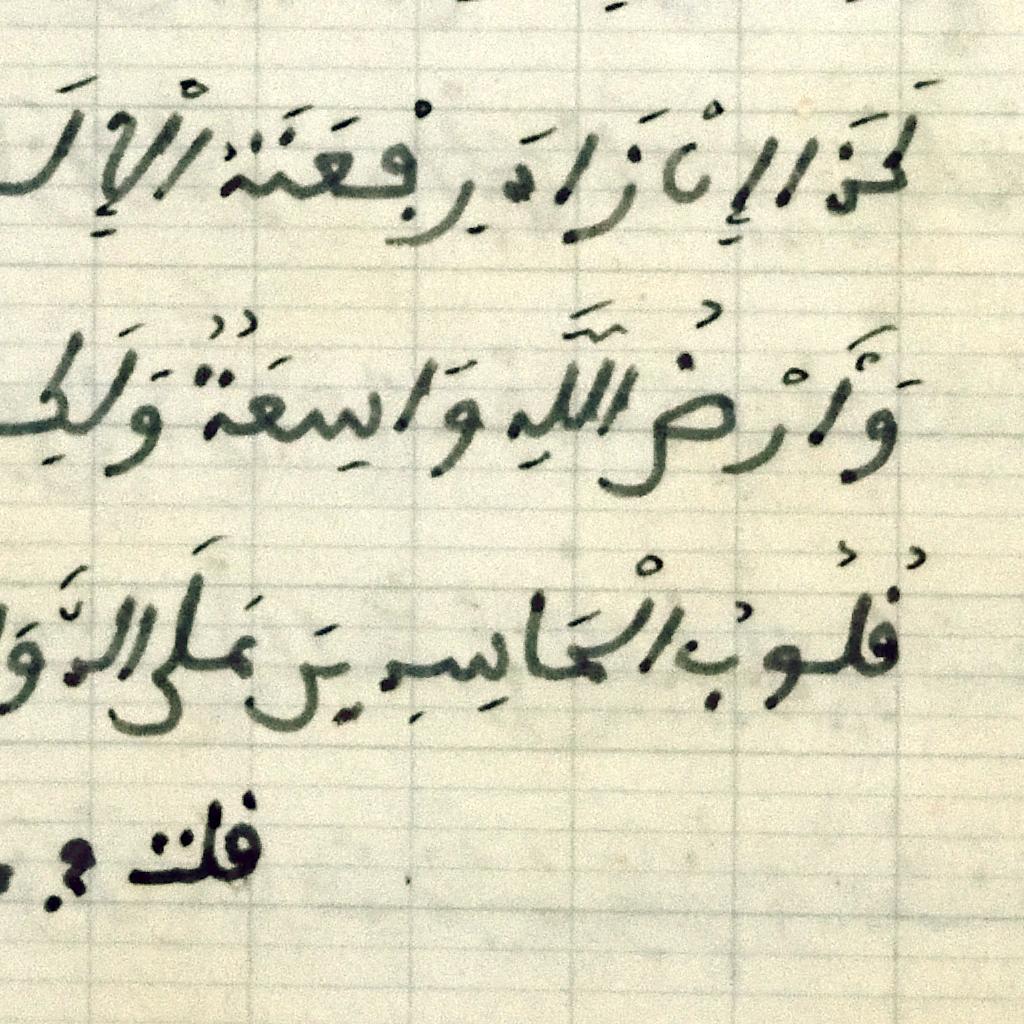 إِنْ زَادَ رِفْعَتَهُ الْإِلَ
وَأَرْضُ اللَّهِ وَاسِعَةٌ وَلَكِ
قُلُوبُ الْحَاسِدِينَ عَلَى الدَّوَا
قلت ؟